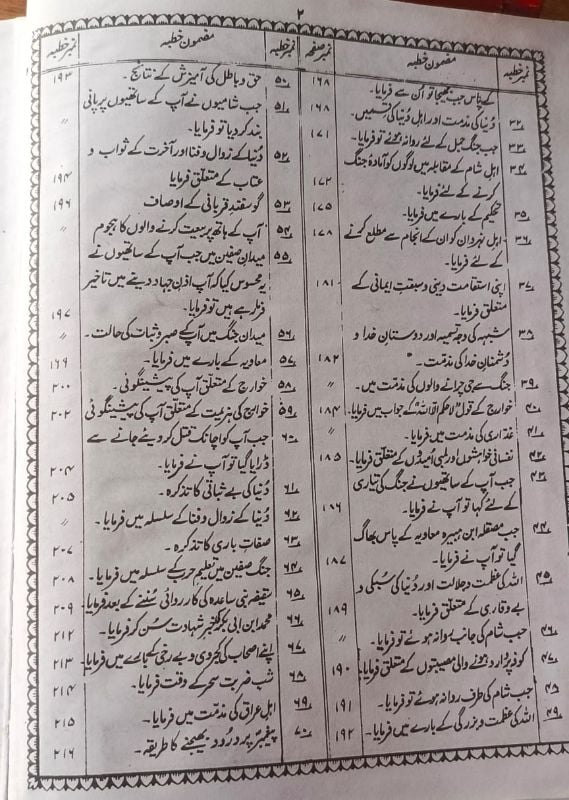 ۲
نمبر خطبہ مضمون خطبہ نمبر صفحہ
کے پاس جب بھیجا تو ان سے فرمایا۔ ۱۶۸
۳۲ دنیا کی مذمت اور اہل دنیا کی قسمیں۔ ۱۶۸
۳۳ جب جنگ جمل کے لئے روانہ ہوئے تو فرمایا۔ ۱۷۱
۳۴ اہل شام کے مقابلہ میں لوگوں کو آمادۂ جنگ
کرنے کے لئے فرمایا۔ ۱۷۲
۳۵ تحکیم کے بارے میں فرمایا۔ ۱۷۵
۳۶ اہل نہروان کو ان کے انجام سے مطلع کرنے ۱۷۸
کے لئے فرمایا۔
۳۷ اپنی استقامت دینی و سبقت ایمانی کے ۱۸۱
متعلق فرمایا۔
۳۸ شبہہ کی وجہ تسمیہ اور دوستان خدا و
دشمنان خدا کی مذمت۔ ۱۸۲
۳۹ جنگ سے جی چرانے والوں کی مذمت میں۔ 〃
۴۰ خوارج کے قول "لا حکم الا للہ" کے جواب میں فرمایا۔ ۱۸۴
۴۱ غداری کی مذمت میں فرمایا۔ 〃
۴۲ نفسانی خواہشوں اور لمبی امیدوں کے متعلق فرمایا۔ ۱۸۵
۴۳ جب آپ کے ساتھیوں نے جنگ کی تیاری
کے لئے کہا تو آپ نے فرمایا۔ ۱۸۶
۴۴ جب مصقلہ ابن ہبیرہ معاویہ کے پاس بھاگ
گیا تو آپ نے فرمایا۔ ۱۸۷
۴۵ اللہ کی عظمت و جلالت اور دنیا کی سبکی و
بے وقاری کے متعلق فرمایا۔ ۱۸۹
۴۶ جب شام کی جانب روانہ ہوئے تو فرمایا۔ 〃
۴۷ کوفہ پر وارد ہونے والی مصیبتوں کے متعلق فرمایا۔ ۱۹۰
۴۸ جب شام کی طرف روانہ ہوئے تو فرمایا۔ ۱۹۱
۴۹ اللہ کی عظمت و بزرگی کے بارے میں فرمایا۔ ۱۹۲
نمبر خطبہ مضمون خطبہ نمبر خطبہ
۵۰ حق و باطل کی آمیزش کے نتائج۔ ۱۹۳
۵۱ جب شامیوں نے آپ کے ساتھیوں پر پانی
بند کر دیا تو فرمایا۔ 〃
۵۲ دنیا کے زوال و فنا اور آخرت کے ثواب و
عتاب کے متعلق فرمایا ۱۹۴
۵۳ گوسفند قربانی کے اوصاف ۱۹۶
۵۴ آپ کے ہاتھ پر بیعت کرنے والوں کا ہجوم 〃
۵۵ میدان صفین میں جب آپ کے ساتھیوں نے
یہ محسوس کیا کہ آپ اذن جہاد دینے میں تاخیر
فرما رہے ہیں تو فرمایا۔ ۱۹۷
۵۶ میدان جنگ میں آپ کے صبر و ثبات کی حالت۔ 〃
۵۷ معاویہ کے بارے میں فرمایا۔ ۱۶۹
۵۸ خوارج کے متعلق آپ کی پیشینگوئی۔ ۲۰۰
۵۹ خوارج کی ہزیمت کے متعلق آپ کی پیشینگوئی ۲۰۲
۶۰ جب آپ کو اچانک قتل کر دیئے جانے سے
ڈرایا گیا تو آپ نے فرمایا۔ ۲۰۴
۶۱ دنیا کی بے ثباتی کا تذکرہ۔ ۲۰۵
۶۲ دنیا کے زوال و فنا کے سلسلہ میں فرمایا۔ 〃
۶۳ صفات باری کا تذکرہ۔ ۲۰۷
۶۴ جنگ صفین میں تعلیم حرب کے سلسلہ میں فرمایا۔ ۲۰۸
۶۵ سقیفہ بنی ساعدہ کی کارروائی سننے کے بعد فرمایا۔ ۲۰۹
۶۶ محمد ابن ابی بکر کی خبر شہادت سن کر فرمایا۔ ۲۱۲
۶۷ اپنے اصحاب کی کجروی و بے رخی کے بارے میں فرمایا۔ ۲۱۳
۶۸ شب ضربت سحر کے وقت فرمایا۔ ۲۱۴
۶۹ اہل عراق کی مذمت میں فرمایا۔ ۲۱۵
۷۰ پیغمبرؐ پر درود بھیجنے کا طریقہ۔ ۲۱۶